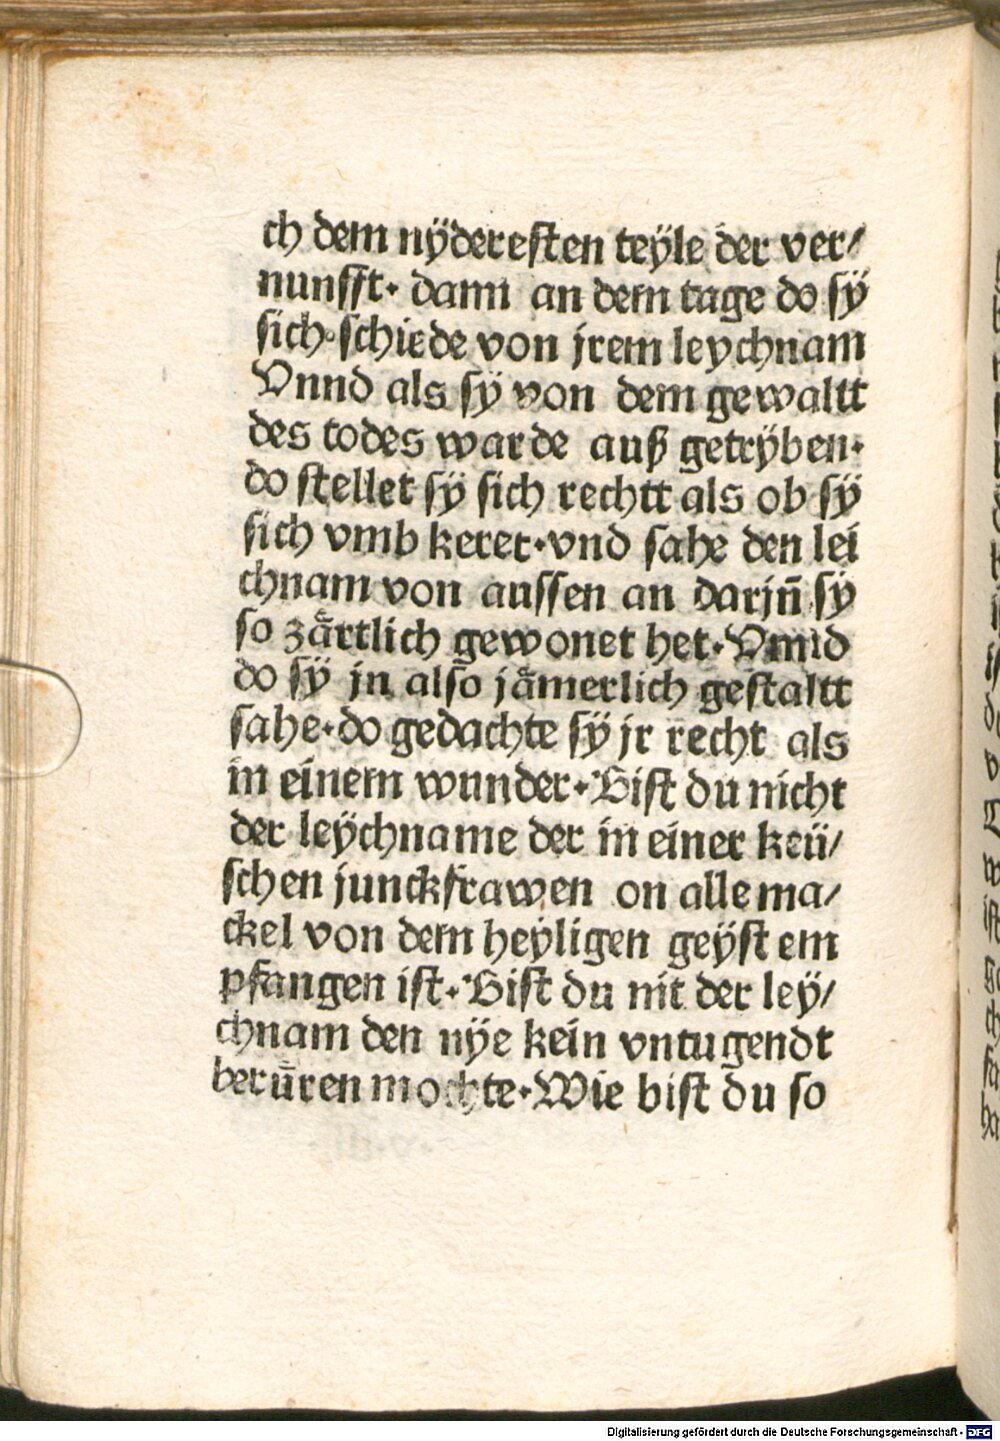 ch dem nÿderesten teÿle der ver/
nunfft. dann an dem tage do sÿ
sich schiede von jrem leychnam
Vnnd als sÿ von dem gewaltt
des todes warde auß getrÿben.
do stellet sÿ sich rechtt als ob sÿ
sich vmb keret. vnd sahe den lei
chnam von aussen an darjn̄ sÿ
so zaͤrtlich gewonet het. Vnnd
do sÿ jn also jaͤmerlich gestaltt
sahe. do gedachte sÿ jr recht als
in einem wunder. Bist du nicht
der leÿchname der in einer keü/
schen junckfrawen on alle ma/
ckel von dem heÿligen geÿst em
pfangen ist. Bist du nit der leÿ/
chnam den nÿe kein vntugendt
beruͤren mochte. Wie bist du so
Digitalisierung gefördert durch die Deutsche Forschungsgemeinschaft - DFG